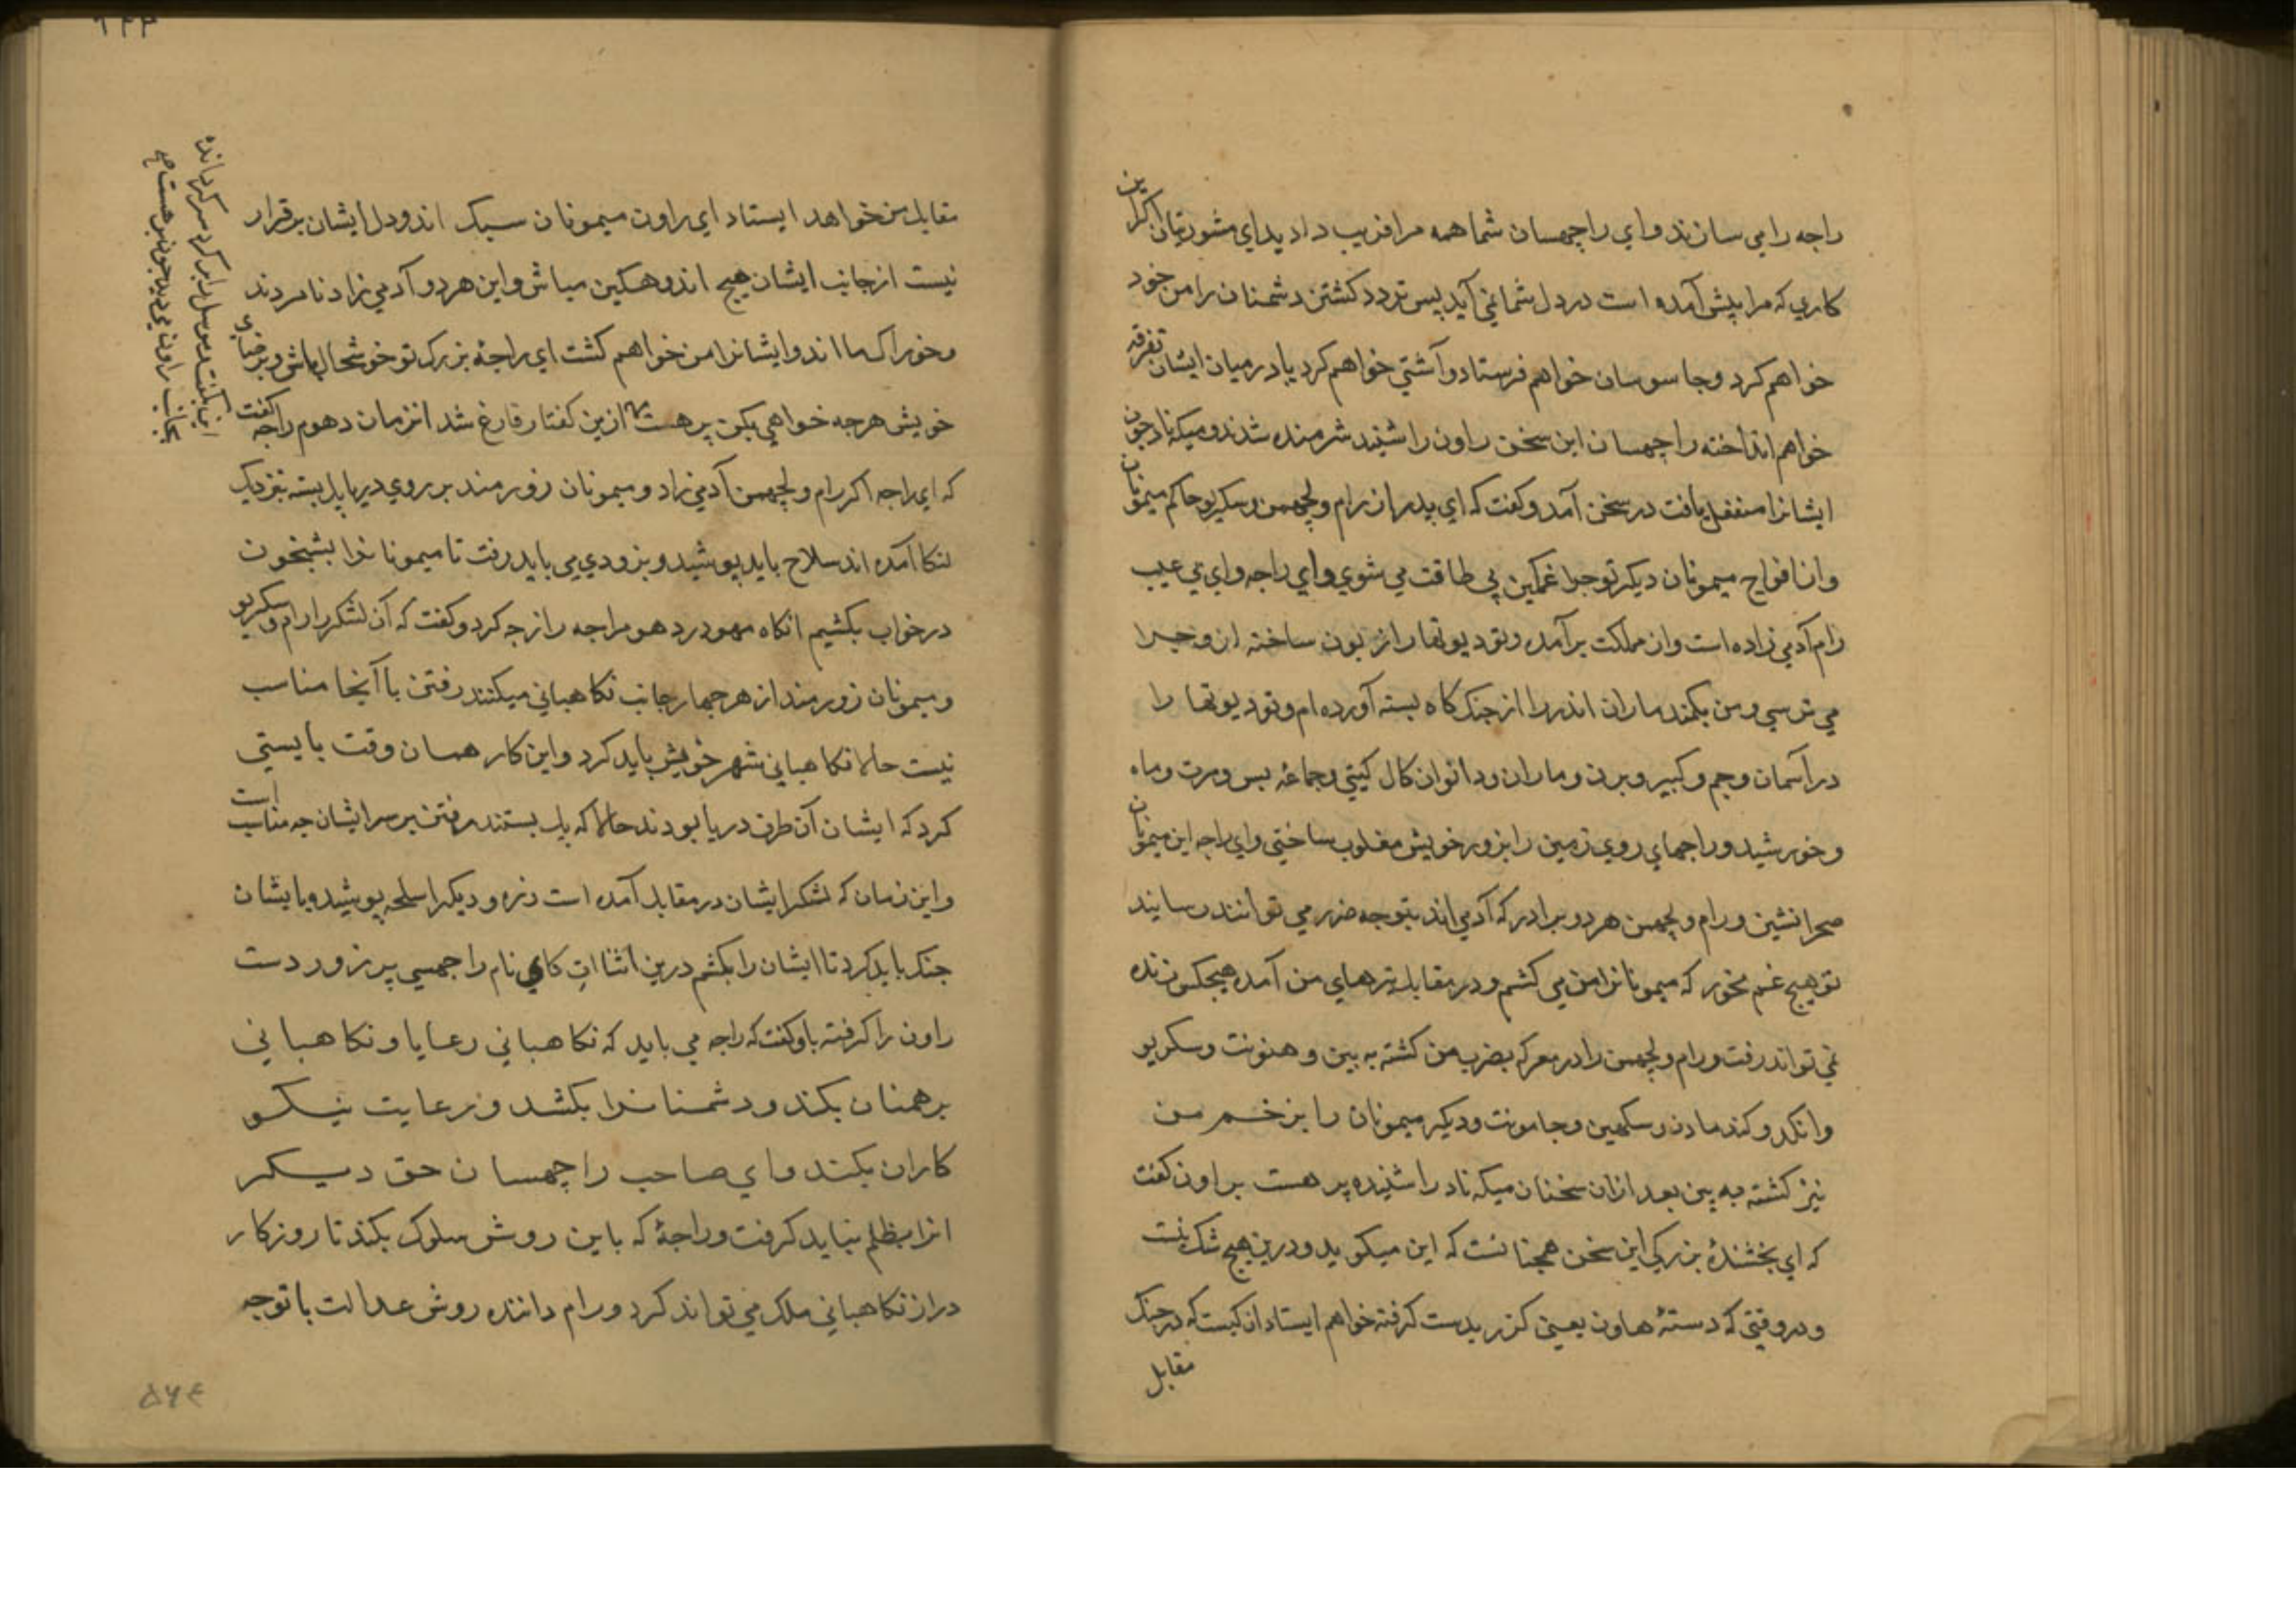 راجه را می سازند و ای راچهسان شما همه مرا فریب دادید ای مشورتیان اکر این
کاری که مرا پیش آمده است در دل شما نمی آید پس تردد کشتن دشمنان را من خود
خواهم کرد و جاسوسان خواهم فرستاد و آشتی خواهم کرد یا در میان ایشان تفرقه
خواهم انداخته راچهسان این سخن راون را شنیده شرمنده شدند و میکه ناد چون
ایشانرا منفعل یافت در سخن آمد و کفت که ای پدر از رام و لچهمن و سکریو حاکم میمونان
و از افواج میمونان دیکر تو چرا غمکین بی طاقت می شوی و ای راجه و ای بی عیب
رام آدمی زاده است و از مملکت برآمده و تو دیوتها را زبون ساخته ازو چرا
می ترسی و من بکمند ماران اندر را از جنک کاه بسته آورده ام و تو دیوتها را
در آسمان و جم و کبیر و برن و ماران و دانوان کال کیتی و جماعه بس و مرت و ماه
و خورشید و راجهای روی زمین را بزور خویش مغلوب ساختی و ای راجه این میمونان
صحرا نشین و رام و لچهمن هر دو برادر که آدمی اند بتو چه ضرر می توانند رسانید
تو هیچ غم مخور که میمونانرا من می کشم و در مقابل تیرهای من آمده هیچکس زنده
نمی تواند رفت و رام و لچهمن را در معرکه بضرب من کشته به بین و هنونت و سکریو
و انکد و کندمادن و سکهین و جامونت و دیکر میمونان را بزخم من
نیز کشته به بین بعد ازان سخنان میکه ناد را شنیده پرهست براون کفت
که ای بخشندهٔ بزرکی این سخن همچنانست که این میکوید و درین هیچ شک نیست
و در وقتی که دستهٔ هاون یعنی کزر بدست کرفته خواهم ایستاد آن کیست که در جنک
مقابل
مقابل من خواهد ایستاد ای راون میمونان سبک اند و دل ایشان برقرار
نیست از جانب ایشان هیچ اندوهکین مباش و این هر دو آدمی زاد نامردند
و خوراک ما اند و ایشانرا من خواهم کشت ای راجهٔ بزرک تو خوشحال باش و برضای
خویش هرچه خواهی بکن پرهست ازین کفتار فارغ شد انزمان دهوم راجه کفت
که ای راجه اکر رام و لچهمن آدمی زاد و میمونان زورمند بر روی دریا پل بسته نزدیک
لنکا آمده اند سلاح باید پوشید و بزودی می باید رفت تا میمونانرا بشبخون
در خواب بکشیم انکاه مهودر دهوم راجه را زجر کرد و کفت که آن لشکر را رام و سکریو
و میمونان زورمند از هر چهار جانب نکاهبانی میکنند رفتن با آنجا مناسب
نیست حالا نکاهبانی شهر خویش باید کرد و این کار همان وقت بایستی
کرد که ایشان آن طرف دریا بودند حالا که پل بستند رفتن بر سر ایشان چه مناسب است
و این زمان که لشکر ایشان در مقابل آمده است زره و دیکر اسلحه پوشید و بایشان
جنک باید کرد تا ایشان را بکشم درین اثنا ات کای نام راچهسی پر زور دست
راون را کرفته باو کفت که راجه می باید که نکاهبانی رعایا و نکاهبانی
برهمنان بکند و دشمنانرا بکشد و رعایت نیکو
کاران بکند و ای صاحب راچهسان حق دیکر
انرا بظلم نباید کرفت و راجهٔ که باین روش سلوک بکند تا روزکار
دراز نکاهبانی ملک می تواند کرد و رام داننده روش عدالت با توجه
این بکفت و موسل برابر کرد سر کردانده
بجانب راون می دید چون پرهست
۵۶۴